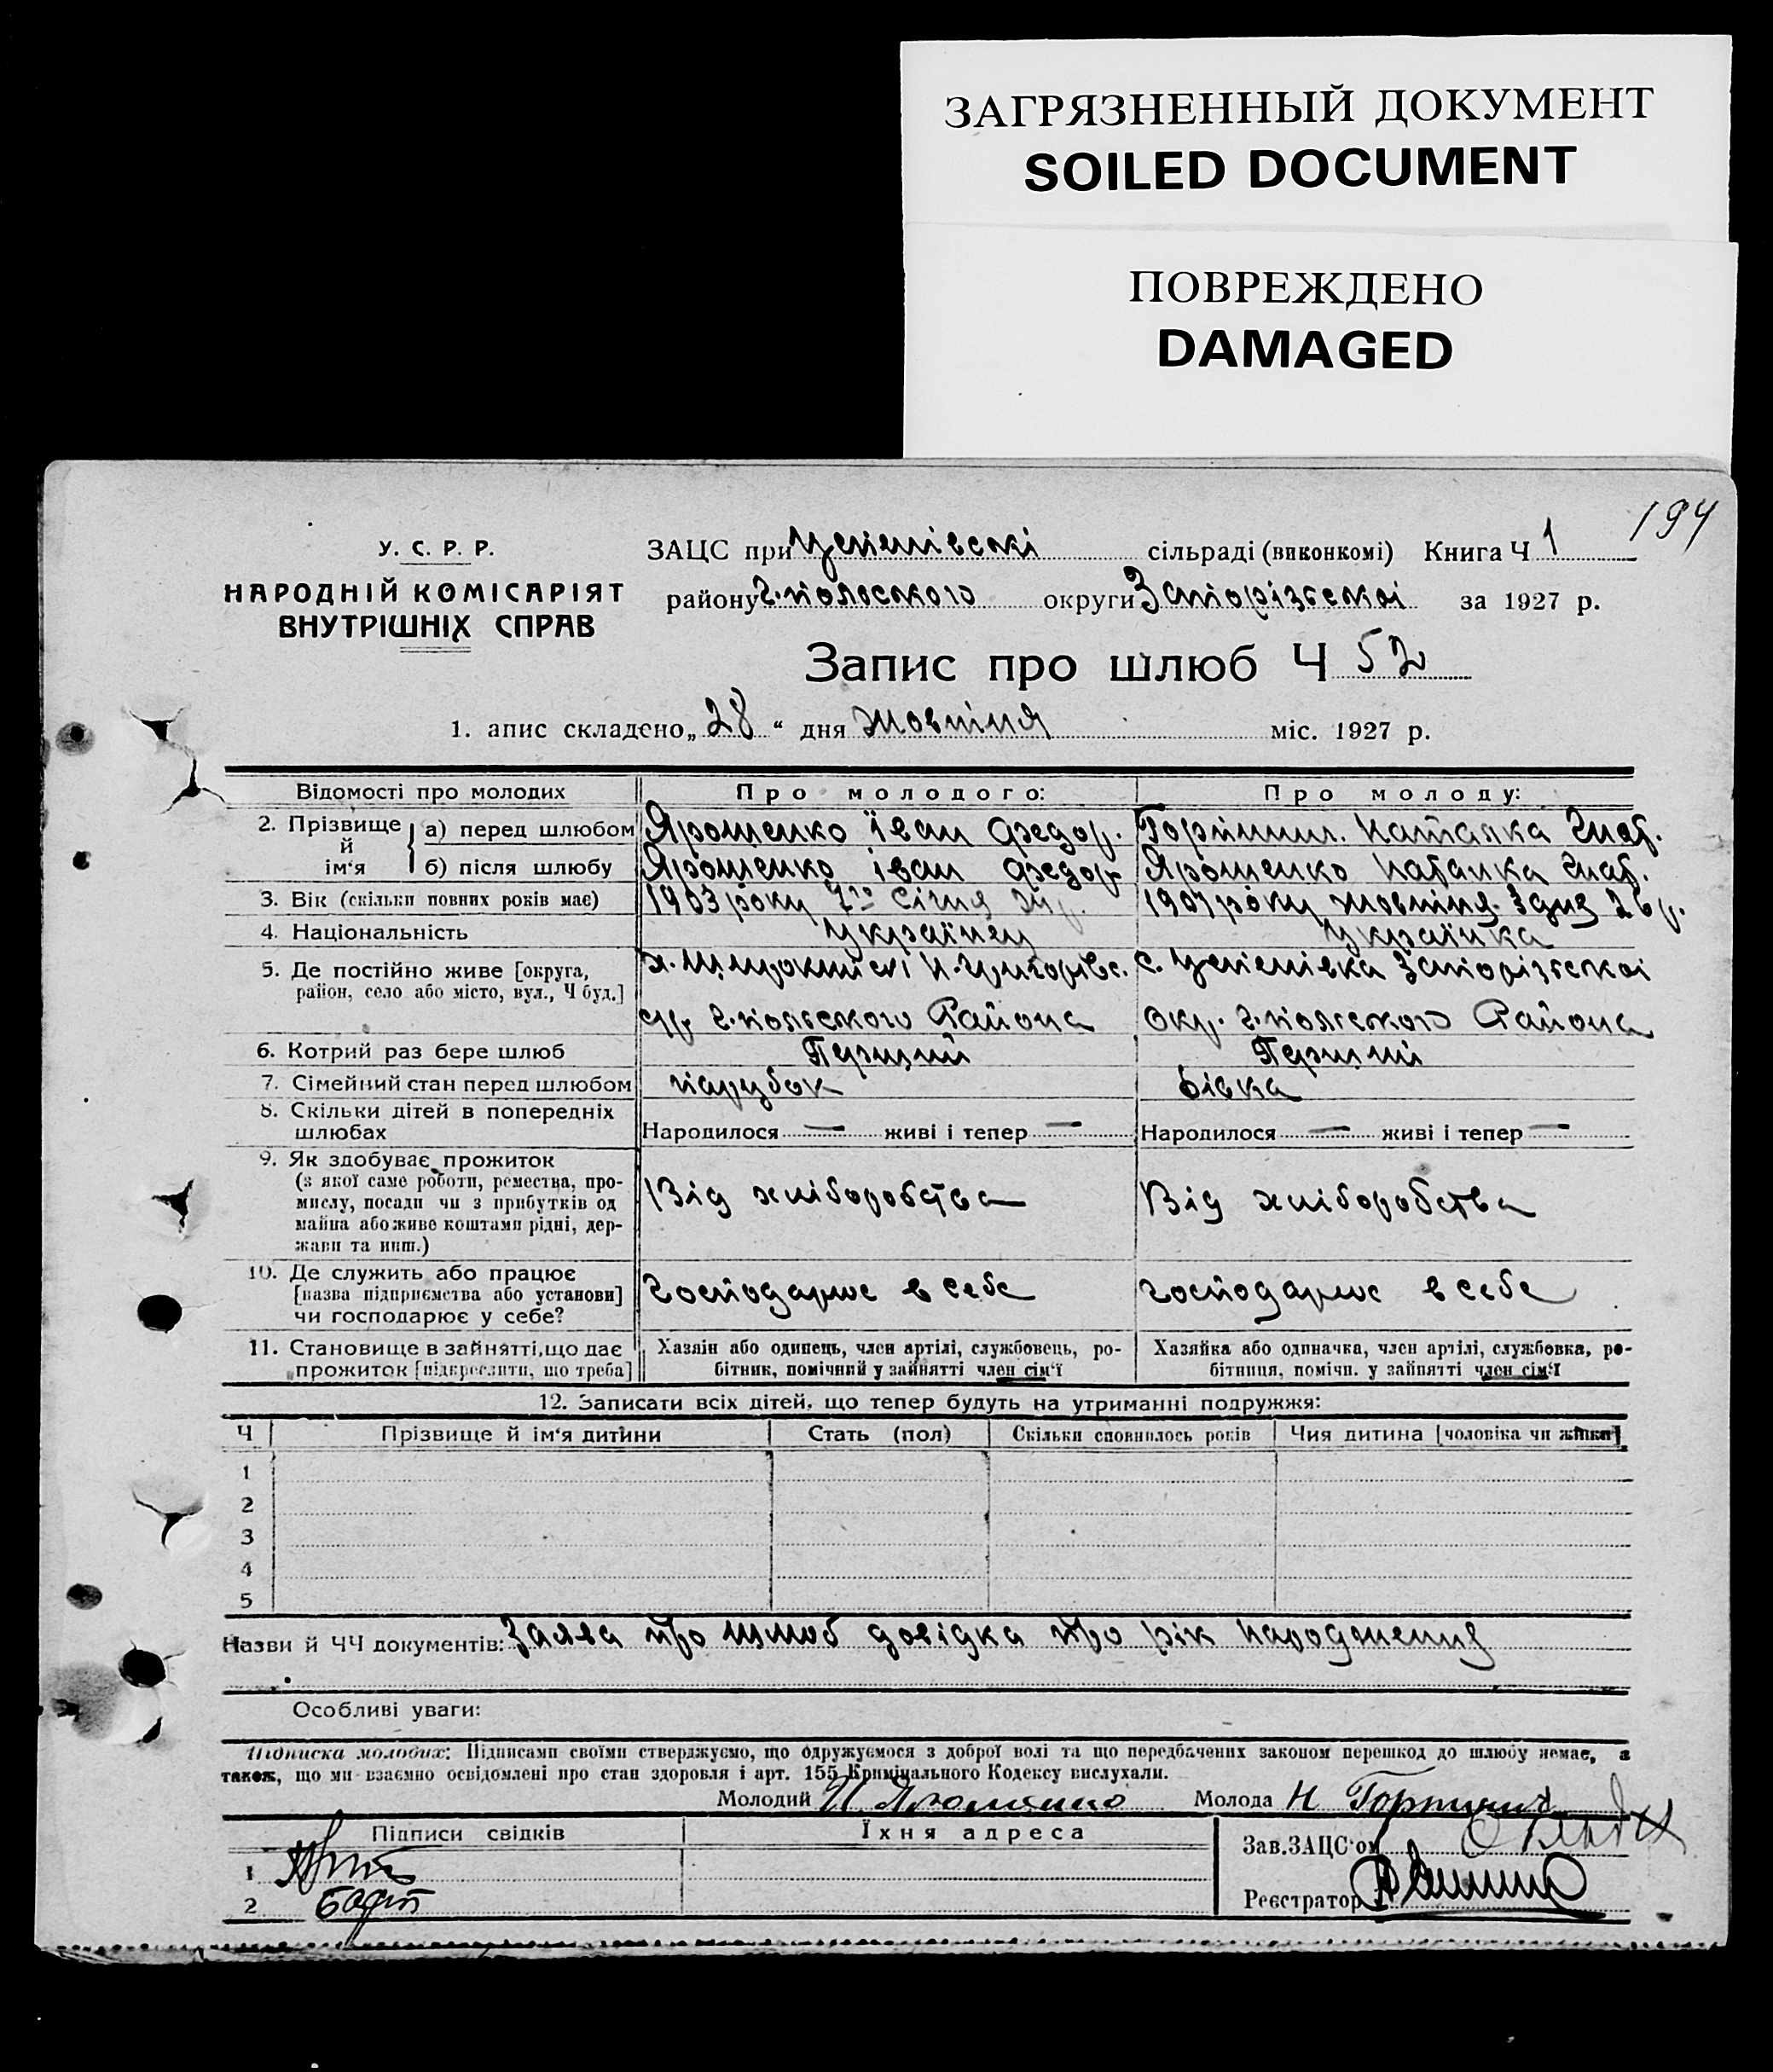 ЗАГРЯЗНЕННЫЙ ДОКУМЕНТ
SOILED DOCUMENT
ПОВРЕЖДЕНО
DAMAGED
194
У. С. Р. Р.
НАРОДНІЙ КОМІСАРІЯТ
ВНУТРІШНІХ СПРАВ
ЗАЦС при Успенівські сільраді (виконкомі) Книга Ч 1
району Г.польського округи Запорізської за 1927 р.
Запис про шлюб Ч 52
1. апис складено „28“ дня Жовтня міс. 1927 р.
Відомості про молодих Про молодого: Про молоду:
2. Прізвище й ім‘я
а) перед шлюбом Ярошенко Іван Федор. Наталка Гнат.
б) після шлюбу Ярошенко Іван Федор. Ярошенко Наталка Гнат.
3. Вік (скільки повних років має) 1903 року 7го Січня 1907 року жовтня 3 дня
4. Національність Українец Українка
5. Де постійно живе [округа, район, село або місто, вул., Ч буд.]
с. Успенівка Запорізської
г.польського Района окр. г.польського Района
6. Котрий раз бере шлюб Перший Перший
7. Сімейний стан перед шлюбом парубок дівка
8. Скільки дітей в попередніх шлюбах Народилося — живі і тепер — Народилося — живі і тепер —
9. Як здобуває прожиток
(з якої саме роботи, ремества, про-
мислу, посади чи з прибутків од
майна або живе коштами рідні, дер-
жави та инш.)
Від хліборобства Від хліборобства
10. Де служить або працює
[назва підприємства або установи]
чи господарює у себе?
Господарює в себе Господарює в себе
11. Становище в зайнятті, що дає
прожиток [підкреслити, що треба]
Хазяїн або одинець, член артілі, службовець, ро-
бітник, помічний у зайнятті член сім‘ї
Хазяйка або одиначка, член артілі, службовка, ро-
бітниця, помічн. у зайнятті член сім‘ї
12. Записати всіх дітей, що тепер будуть на утриманні подружжя:
Ч Прізвище й ім‘я дитини Стать (пол) Скільки сповнилось років Чия дитина [чоловіка чи жінки]
1
2
3
4
5
Назви й ЧЧ документів: Заява про шлюб довідка про рік народження
Особливі уваги:
Підписка молодих: Підписами своїми стверджуємо, що одружуємося з доброї волі та що передбачених законом перешкод до шлюбу немає, а
також, що ми взаємно освідомлені про стан здоровля і арт. 155 Кримінального Кодексу вислухали.
Молодий И Ярошенко Молода Н
Підписи свідків Їхня адреса
Зав. ЗАЦС‘ом
1
2
Реєстратор